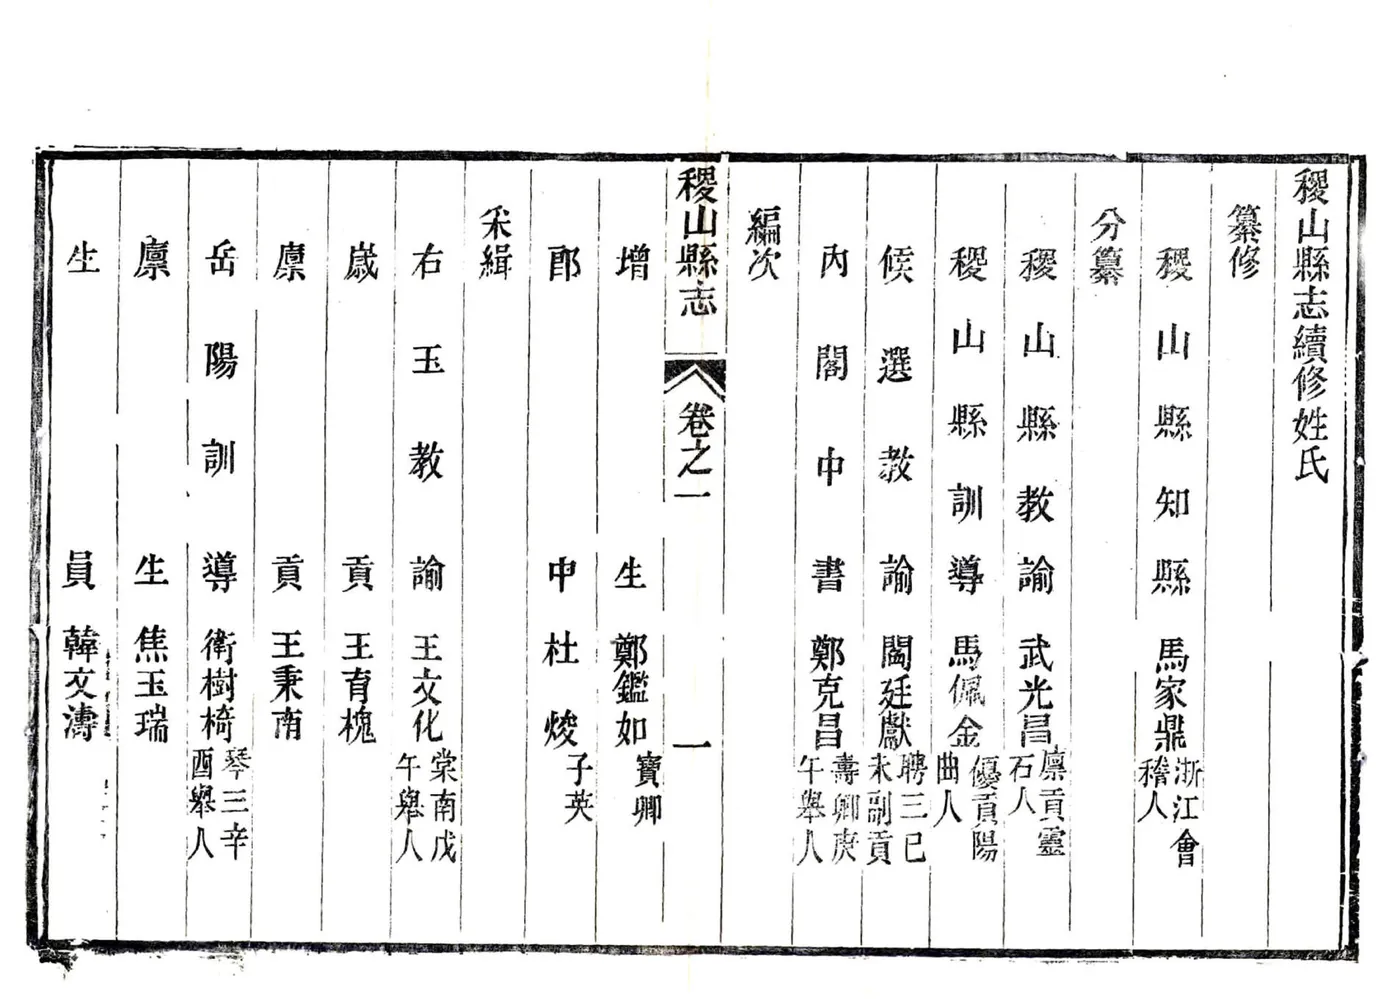 稷山縣志續修姓氏
纂修
稷山縣知縣馬家鼎浙江會稽人
分纂
稷山縣教諭武光昌廩貢靈石人
稷山縣訓導馬佩金優貢陽曲人
候選教諭閻廷獻聘三巳未副貢
內閣中書鄭克昌壽卿庚午舉人
編次
稷山縣志 卷之一 一
增生鄭鑑如寶卿
郎中杜焌子英
采緝
右玉教諭王文化棠南戊午舉人
歲貢王育槐
廪貢王秉南
岳陽訓導衛樹椅琴三辛酉舉人
廪生焦玉瑞
生員韓文濤